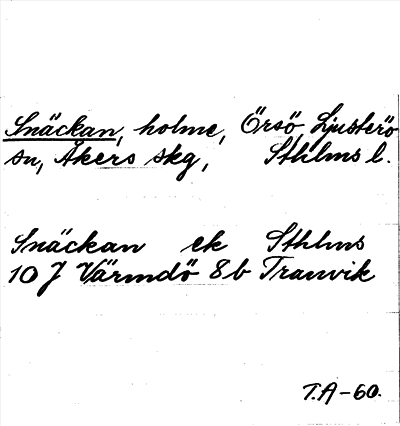 Snäckan, holme, Örsö, Ljusterö
sn, Åkers skg, Sthlms l.
Snäckan ek Sthlms
10 J Värmdö 8b Tranvik
T.A-60.